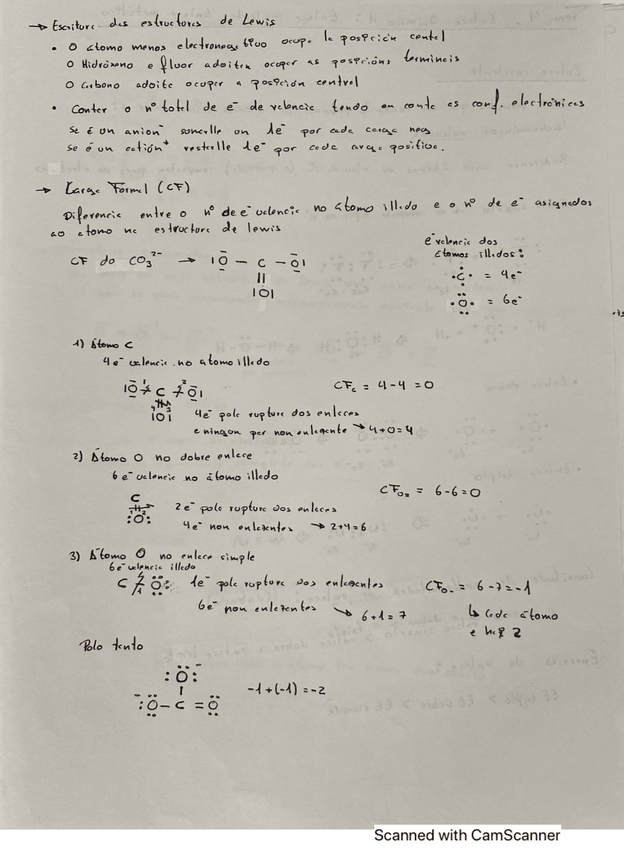 → Escritura das estructuras de Lewis
• O átomo menos electronegativo ocupa la posición cental
O Hidróxeno e fluor adoitan ocupar as posicións terminais
O Carbono adoita ocupar a posición central
• Contar o nº total de e⁻ de valencia tendo en conta as conf. electrónicas
Se é un anion⁻ sumaselle un 1e⁻ por cada carga neg
Se é un catión⁺ restaselle 1e⁻ por cada carga positiva.
→ Carga Formal (CF)
Diferencia entre o nº de e⁻ valencia no átomo illado e o nº de e⁻ asignados
ao átomo na estructura de lewis
e⁻ valencia dos
átomos illados:
CF do CO₃²⁻ → |O̅ – C – O̅|
||
|O|
·C· = 4e⁻
·O· = 6e⁻
1) Átomo C
4e⁻ valencia no átomo illado
|O – C – O|
|O|
CFc = 4-4 = 0
4e⁻ pola ruptura dos enlaces
e ningun par non enlazante → 4+0=4
2) Átomo O no dobre enlace
6e⁻ valencia no átomo illado
CFO= = 6-6=0
C
:O:
2e⁻ pola ruptura dos enlaces
4e⁻ non enlazantes → 2+4=6
3) Átomo O no enlace simple
6e⁻ valencia illado
C – O: 1e⁻ pola ruptura dos enlazantes
CFO- = 6-7=-1
6e⁻ non enlazantes → 6+1=7
↳ Cada átomo
e hai 2
Polo tanto
:O:⁻
|
⁻:O – C = O
-1+(-1)=-2
Scanned with CamScanner